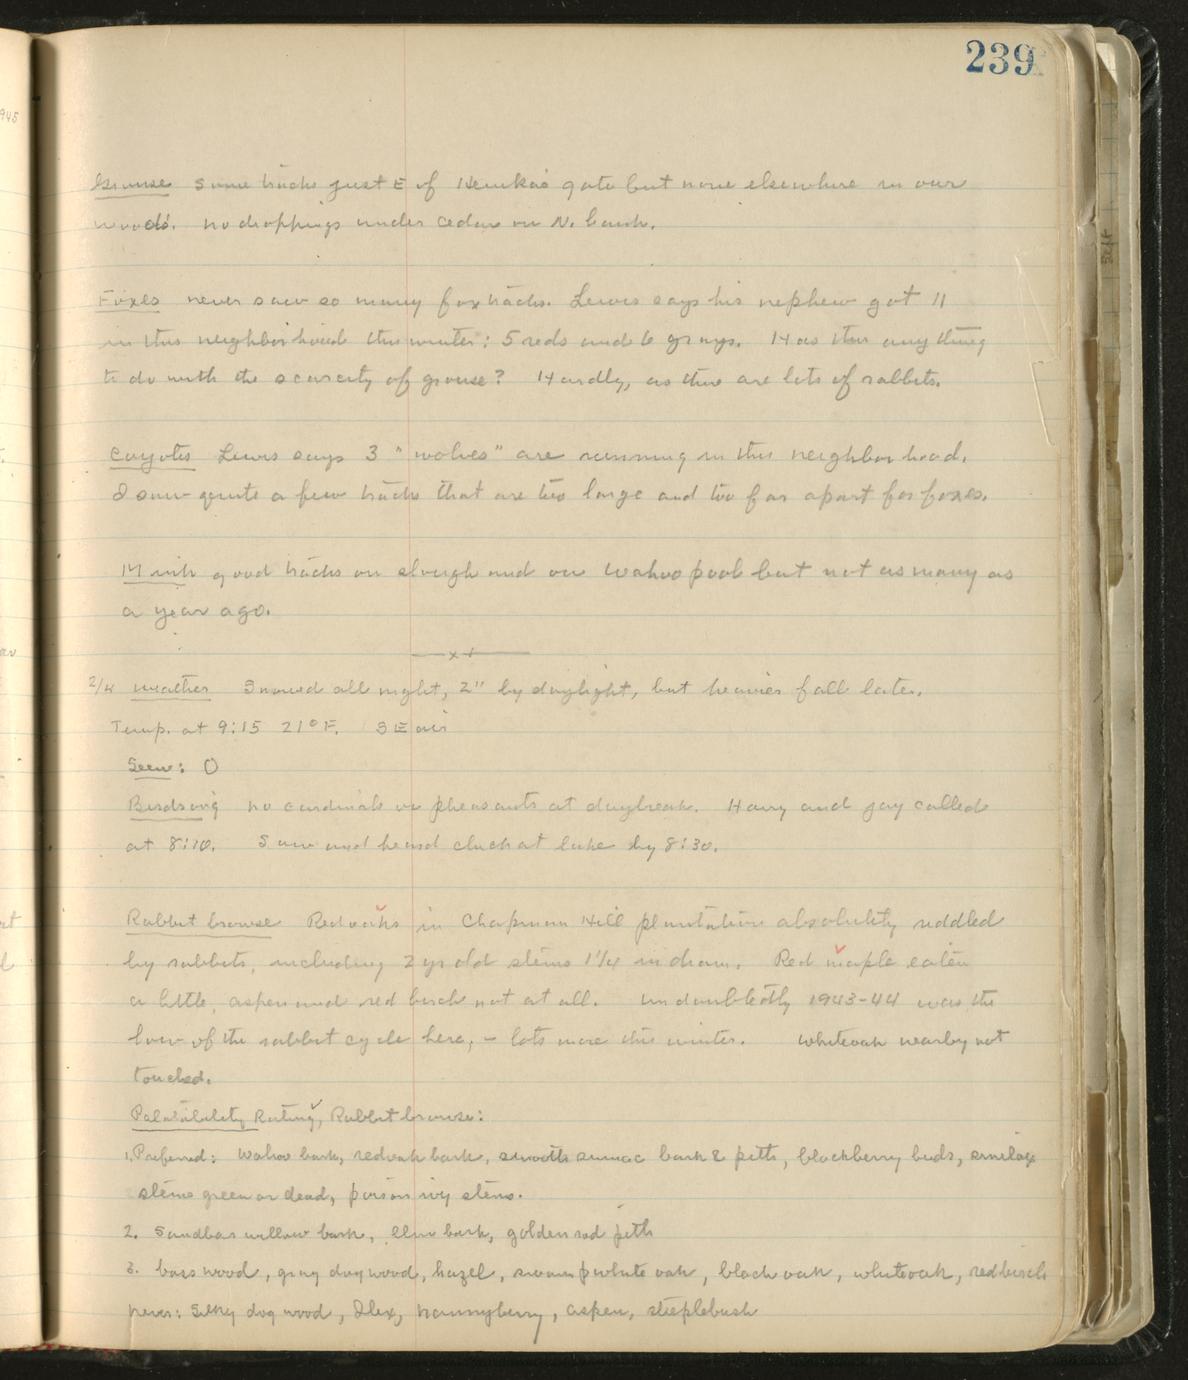 239
Grouse Some tracks just E of Hemkas gate but none elsewhere in our
woods. no droppings under cedar on N. bank.
Foxes never saw so many fox tracks. Lewis says his nephew got 11
in this neighborhood this winter: 5 reds and 6 grays. Has this anything
to do with the scarcity of grouse? Hardly, as there are lots of rabbits.
Coyotes Lewis says 3 "wolves" are running in this neighborhood.
I saw quite a few tracks that are too large and too far apart for foxes.
Mink good tracks on slough and on Wahoo pool but not as many as
a year ago.
2/4 Weather Snowed all night, 2" by daylight, but heavier fall later.
Temp. at 9:15 21° F. SE air
Seen: 0
Birdsong no cardinals or pheasants at daybreak. Hairy and jay called
at 8:10. Saw and heard cluck at lake by 8:30.
Rabbit browse Red oaks in Chapman Hill plantation absolutely riddled
by rabbits, including 2 yr old stems 1 1/4 in diam. Red maple eaten
a little, aspen and red birch not at all. Undoubtedly 1943-44 was the
low of the rabbit cycle here, - lots more this winter. White oak nearby not
touched.
Palatability Rating, Rabbit browse:
1. Preferred: Wahoo bark, red oak bark, smooth sumac bark & pith, blackberry buds, smilax
stems green or dead, poison ivy stems.
2. Sandbar willow bark, elm bark, goldenrod pith
3. basswood, gray dogwood, hazel, swamp white oak, black oak, white oak, red birch
never: Silky dogwood, Ilex, nannyberry, aspen, steeplebush